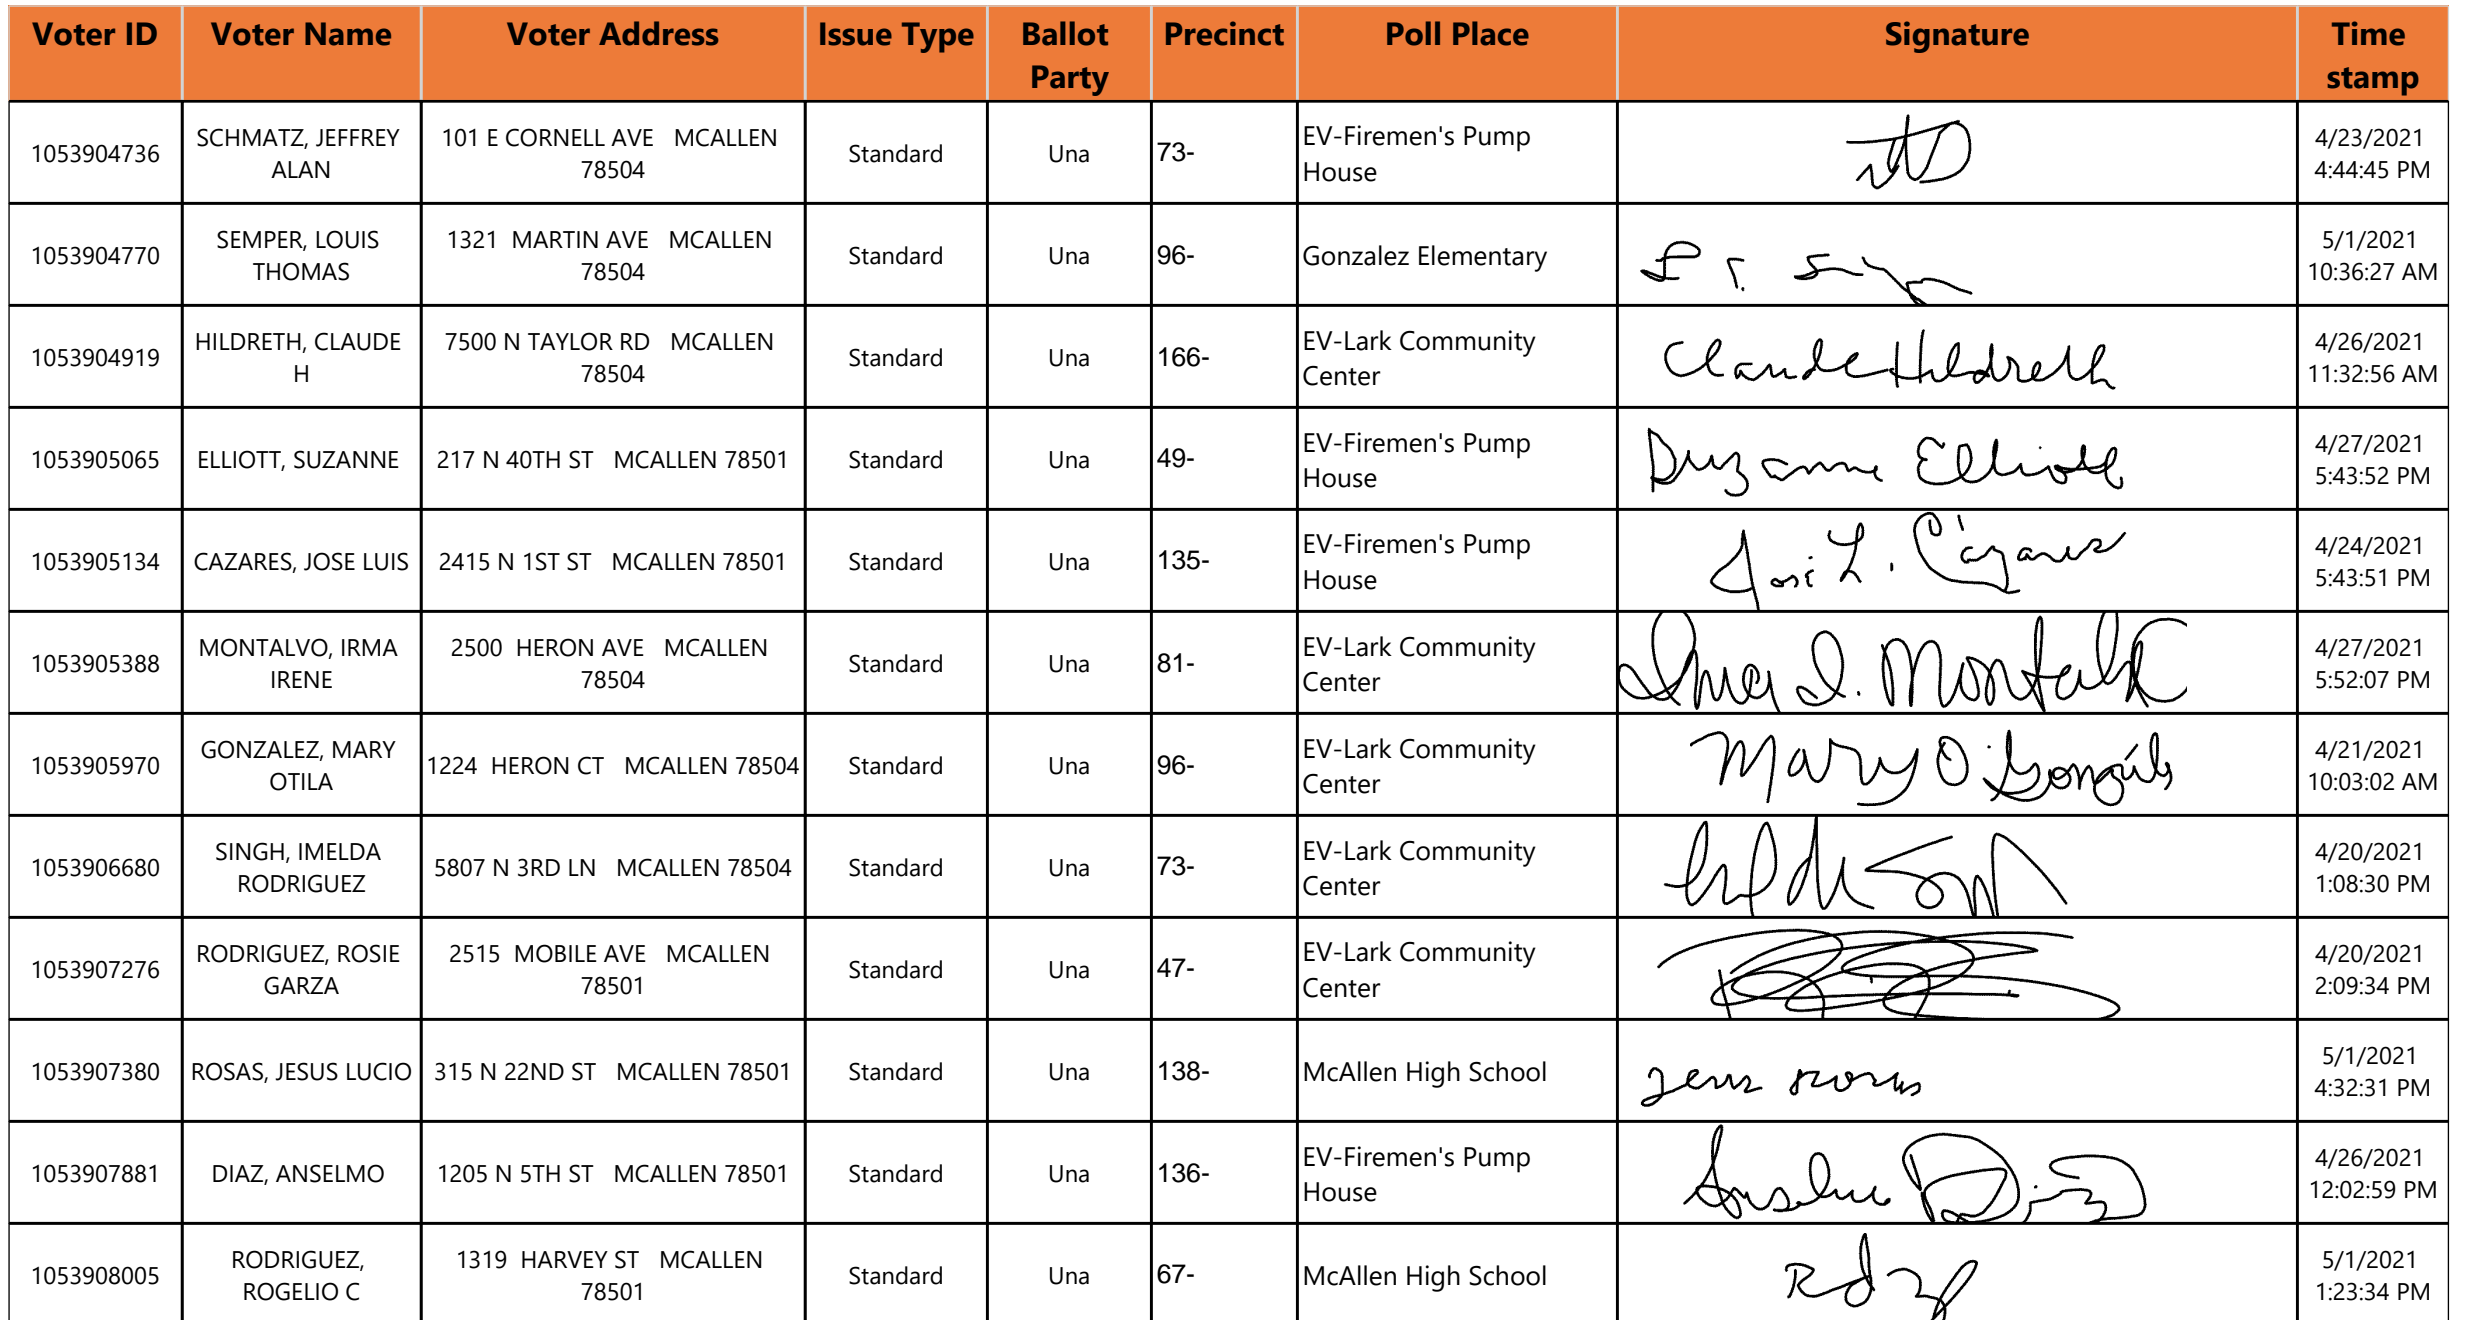 Voter ID Voter Name Voter Address Issue Type Ballot Party Precinct Poll Place Signature Time stamp
1053904736 SCHMATZ, JEFFREY ALAN 101 E CORNELL AVE MCALLEN 78504 Standard Una 73- EV-Firemen's Pump House 4/23/2021 4:44:45 PM
1053904770 SEMPER, LOUIS THOMAS 1321 MARTIN AVE MCALLEN 78504 Standard Una 96- Gonzalez Elementary 5/1/2021 10:36:27 AM
1053904919 HILDRETH, CLAUDE H 7500 N TAYLOR RD MCALLEN 78504 Standard Una 166- EV-Lark Community Center Claude Hildreth 4/26/2021 11:32:56 AM
1053905065 ELLIOTT, SUZANNE 217 N 40TH ST MCALLEN 78501 Standard Una 49- EV-Firemen's Pump House Suzanne Elliott 4/27/2021 5:43:52 PM
1053905134 CAZARES, JOSE LUIS 2415 N 1ST ST MCALLEN 78501 Standard Una 135- EV-Firemen's Pump House José L. Cázares 4/24/2021 5:43:51 PM
1053905388 MONTALVO, IRMA IRENE 2500 HERON AVE MCALLEN 78504 Standard Una 81- EV-Lark Community Center Irma I. Montalvo 4/27/2021 5:52:07 PM
1053905970 GONZALEZ, MARY OTILA 1224 HERON CT MCALLEN 78504 Standard Una 96- EV-Lark Community Center Mary O. González 4/21/2021 10:03:02 AM
1053906680 SINGH, IMELDA RODRIGUEZ 5807 N 3RD LN MCALLEN 78504 Standard Una 73- EV-Lark Community Center 4/20/2021 1:08:30 PM
1053907276 RODRIGUEZ, ROSIE GARZA 2515 MOBILE AVE MCALLEN 78501 Standard Una 47- EV-Lark Community Center 4/20/2021 2:09:34 PM
1053907380 ROSAS, JESUS LUCIO 315 N 22ND ST MCALLEN 78501 Standard Una 138- McAllen High School 5/1/2021 4:32:31 PM
1053907881 DIAZ, ANSELMO 1205 N 5TH ST MCALLEN 78501 Standard Una 136- EV-Firemen's Pump House Anselmo Diaz 4/26/2021 12:02:59 PM
1053908005 RODRIGUEZ, ROGELIO C 1319 HARVEY ST MCALLEN 78501 Standard Una 67- McAllen High School 5/1/2021 1:23:34 PM